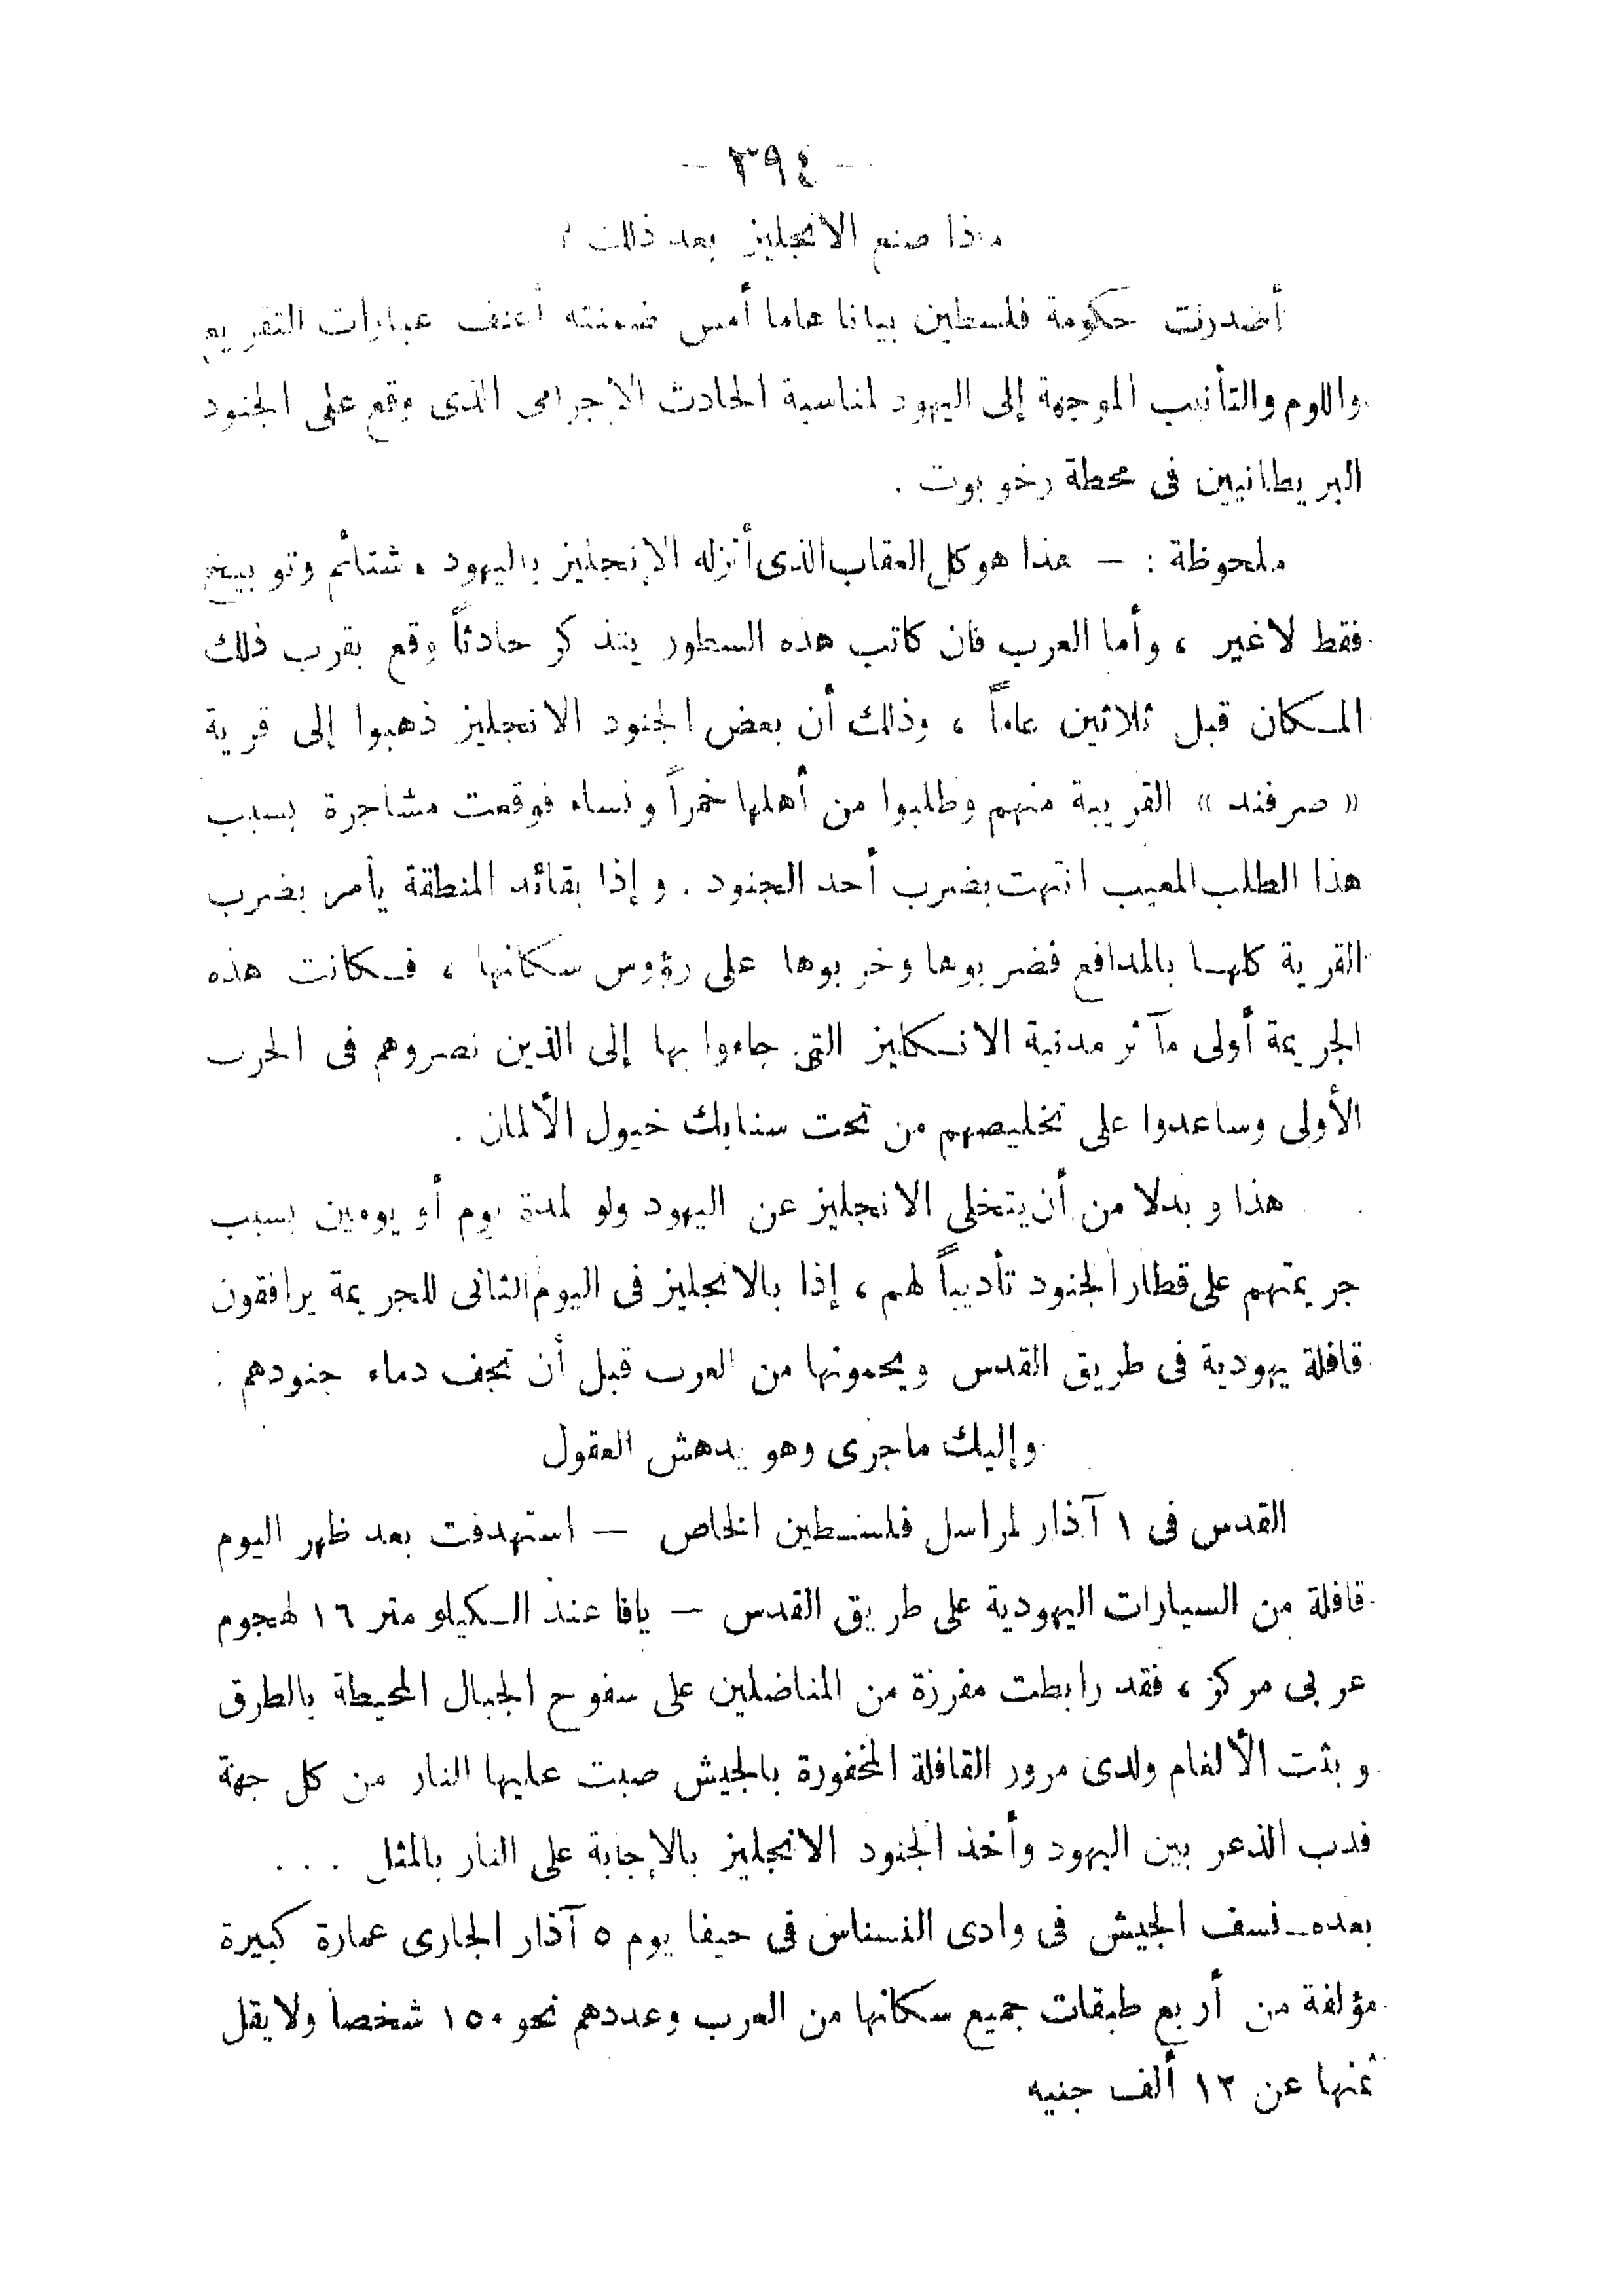 - ٣٩٤ -
ماذا صنع الانجليز بعد ذلك ؟
أصدرت حكومة فلسطين بيانا عاما أمس ضمنته أعنف عبارات التقريع
واللوم والتأنيب الموجهة إلى اليهود لمناسبة الحادث الاجرامى الذى وقع على الجنود
البريطانيين فى محطة رخوبوت .
ملحوظة : — هذا هو كل العقاب الذى أنزله الإنجليز باليهود ، شتائم وتوبيخ
فقط لا غير ، وأما العرب فان كاتب هذه السطور يتذكر حادثاً وقع بقرب ذلك
المكان قبل ثلاثين عاماً ، وذلك أن بعض الجنود الانجليز ذهبوا إلى قرية
« صرفند » القريبة منهم وطلبوا من أهلها خمراً ونساء فوقعت مشاجرة بسبب
هذا الطلب المعيب انتهت بضرب أحد الجنود . وإذا بقائد المنطقة يأمر بضرب
القرية كلها بالمدافع فضربوها وخربوها على رؤوس سكانها ، فكانت هذه
الجريمة أولى مآثر مدنية الانكليز التى جاءوا بها إلى الذين نصروهم فى الحرب
الأولى وساعدوا على تخليصهم من تحت سنابك خيول الألمان .
هذا وبدلا من أن يتخلى الانجليز عن اليهود ولو لمدة يوم أو يومين بسبب
جريمتهم على قطار الجنود تأديباً لهم ، إذا بالانجليز فى اليوم الثانى للجريمة يرافقون
قافلة يهودية فى طريق القدس ويحمونها من العرب قبل أن تجف دماء جنودهم .
وإليك ماجرى وهو يدهش العقول
القدس فى ١ آذار لمراسل فلسطين الخاص — استهدفت بعد ظهر اليوم
قافلة من السيارات اليهودية على طريق القدس — يافا عند الكيلو متر ١٦ لهجوم
عربى مركز ، فقد رابطت مفرزة من المناضلين على سفوح الجبال المحيطة بالطرق
وبثت الألغام ولدى مرور القافلة المخفورة بالجيش صبت عليها النار من كل جهة
فدب الذعر بين اليهود وأخذ الجنود الانجليز بالإجابة على النار بالمثل . . .
بعده — نسف الجيش فى وادى النسناس فى حيفا يوم ٥ آذار الجارى عمارة كبيرة
مؤلفة من أربع طبقات جميع سكانها من العرب وعددهم نحو ١٥٠ شخصا ولا يقل
ثمنها عن ١٣ ألف جنيه